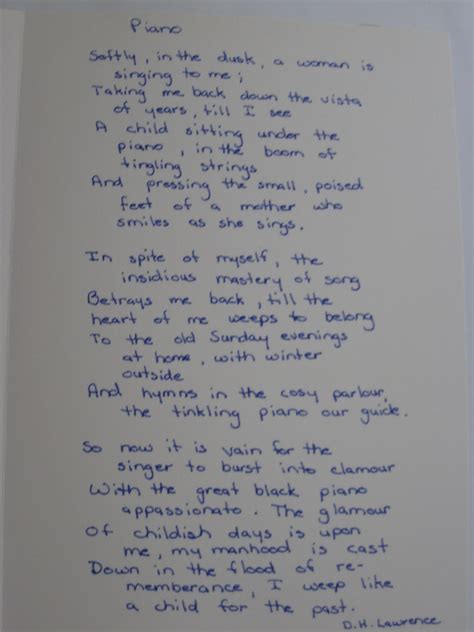 Piano
Softly, in the dusk, a woman is
singing to me;
Taking me back down the vista
of years, till I see
A child sitting under the
piano, in the boom of
tingling strings
And pressing the small, poised
feet of a mother who
smiles as she sings.
In spite of myself, the
insidious mastery of song
Betrays me back, till the
heart of me weeps to belong
To the old Sunday evenings
at home, with winter
outside
And hymns in the cosy parlour,
the tinkling piano our guide.
So now it is vain for the
singer to burst into clamour
With the great black piano
appassionato. The glamour
Of childish days is upon
me, my manhood is cast
Down in the flood of re-
memberance, I weep like
a child for the past.
D.H. Lawrence